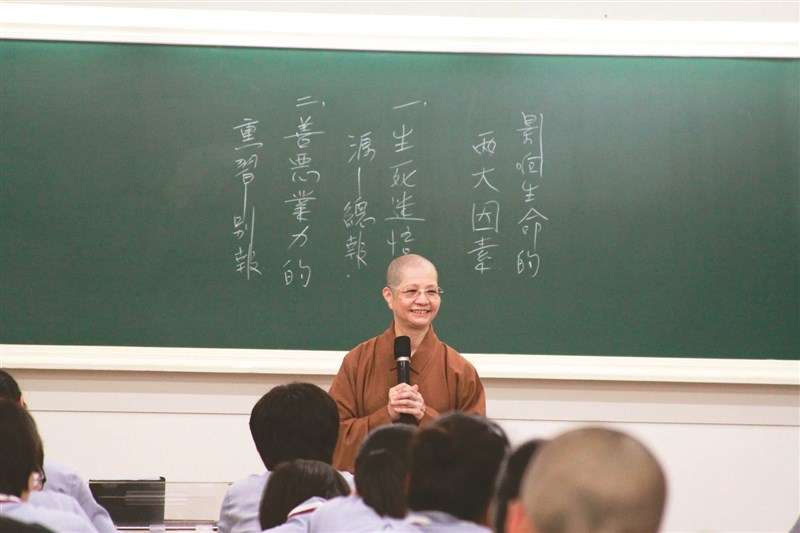 影响生命的
两大因素
一.生死迷悟
源—總報.
二.善惡業力的
熏習—別報